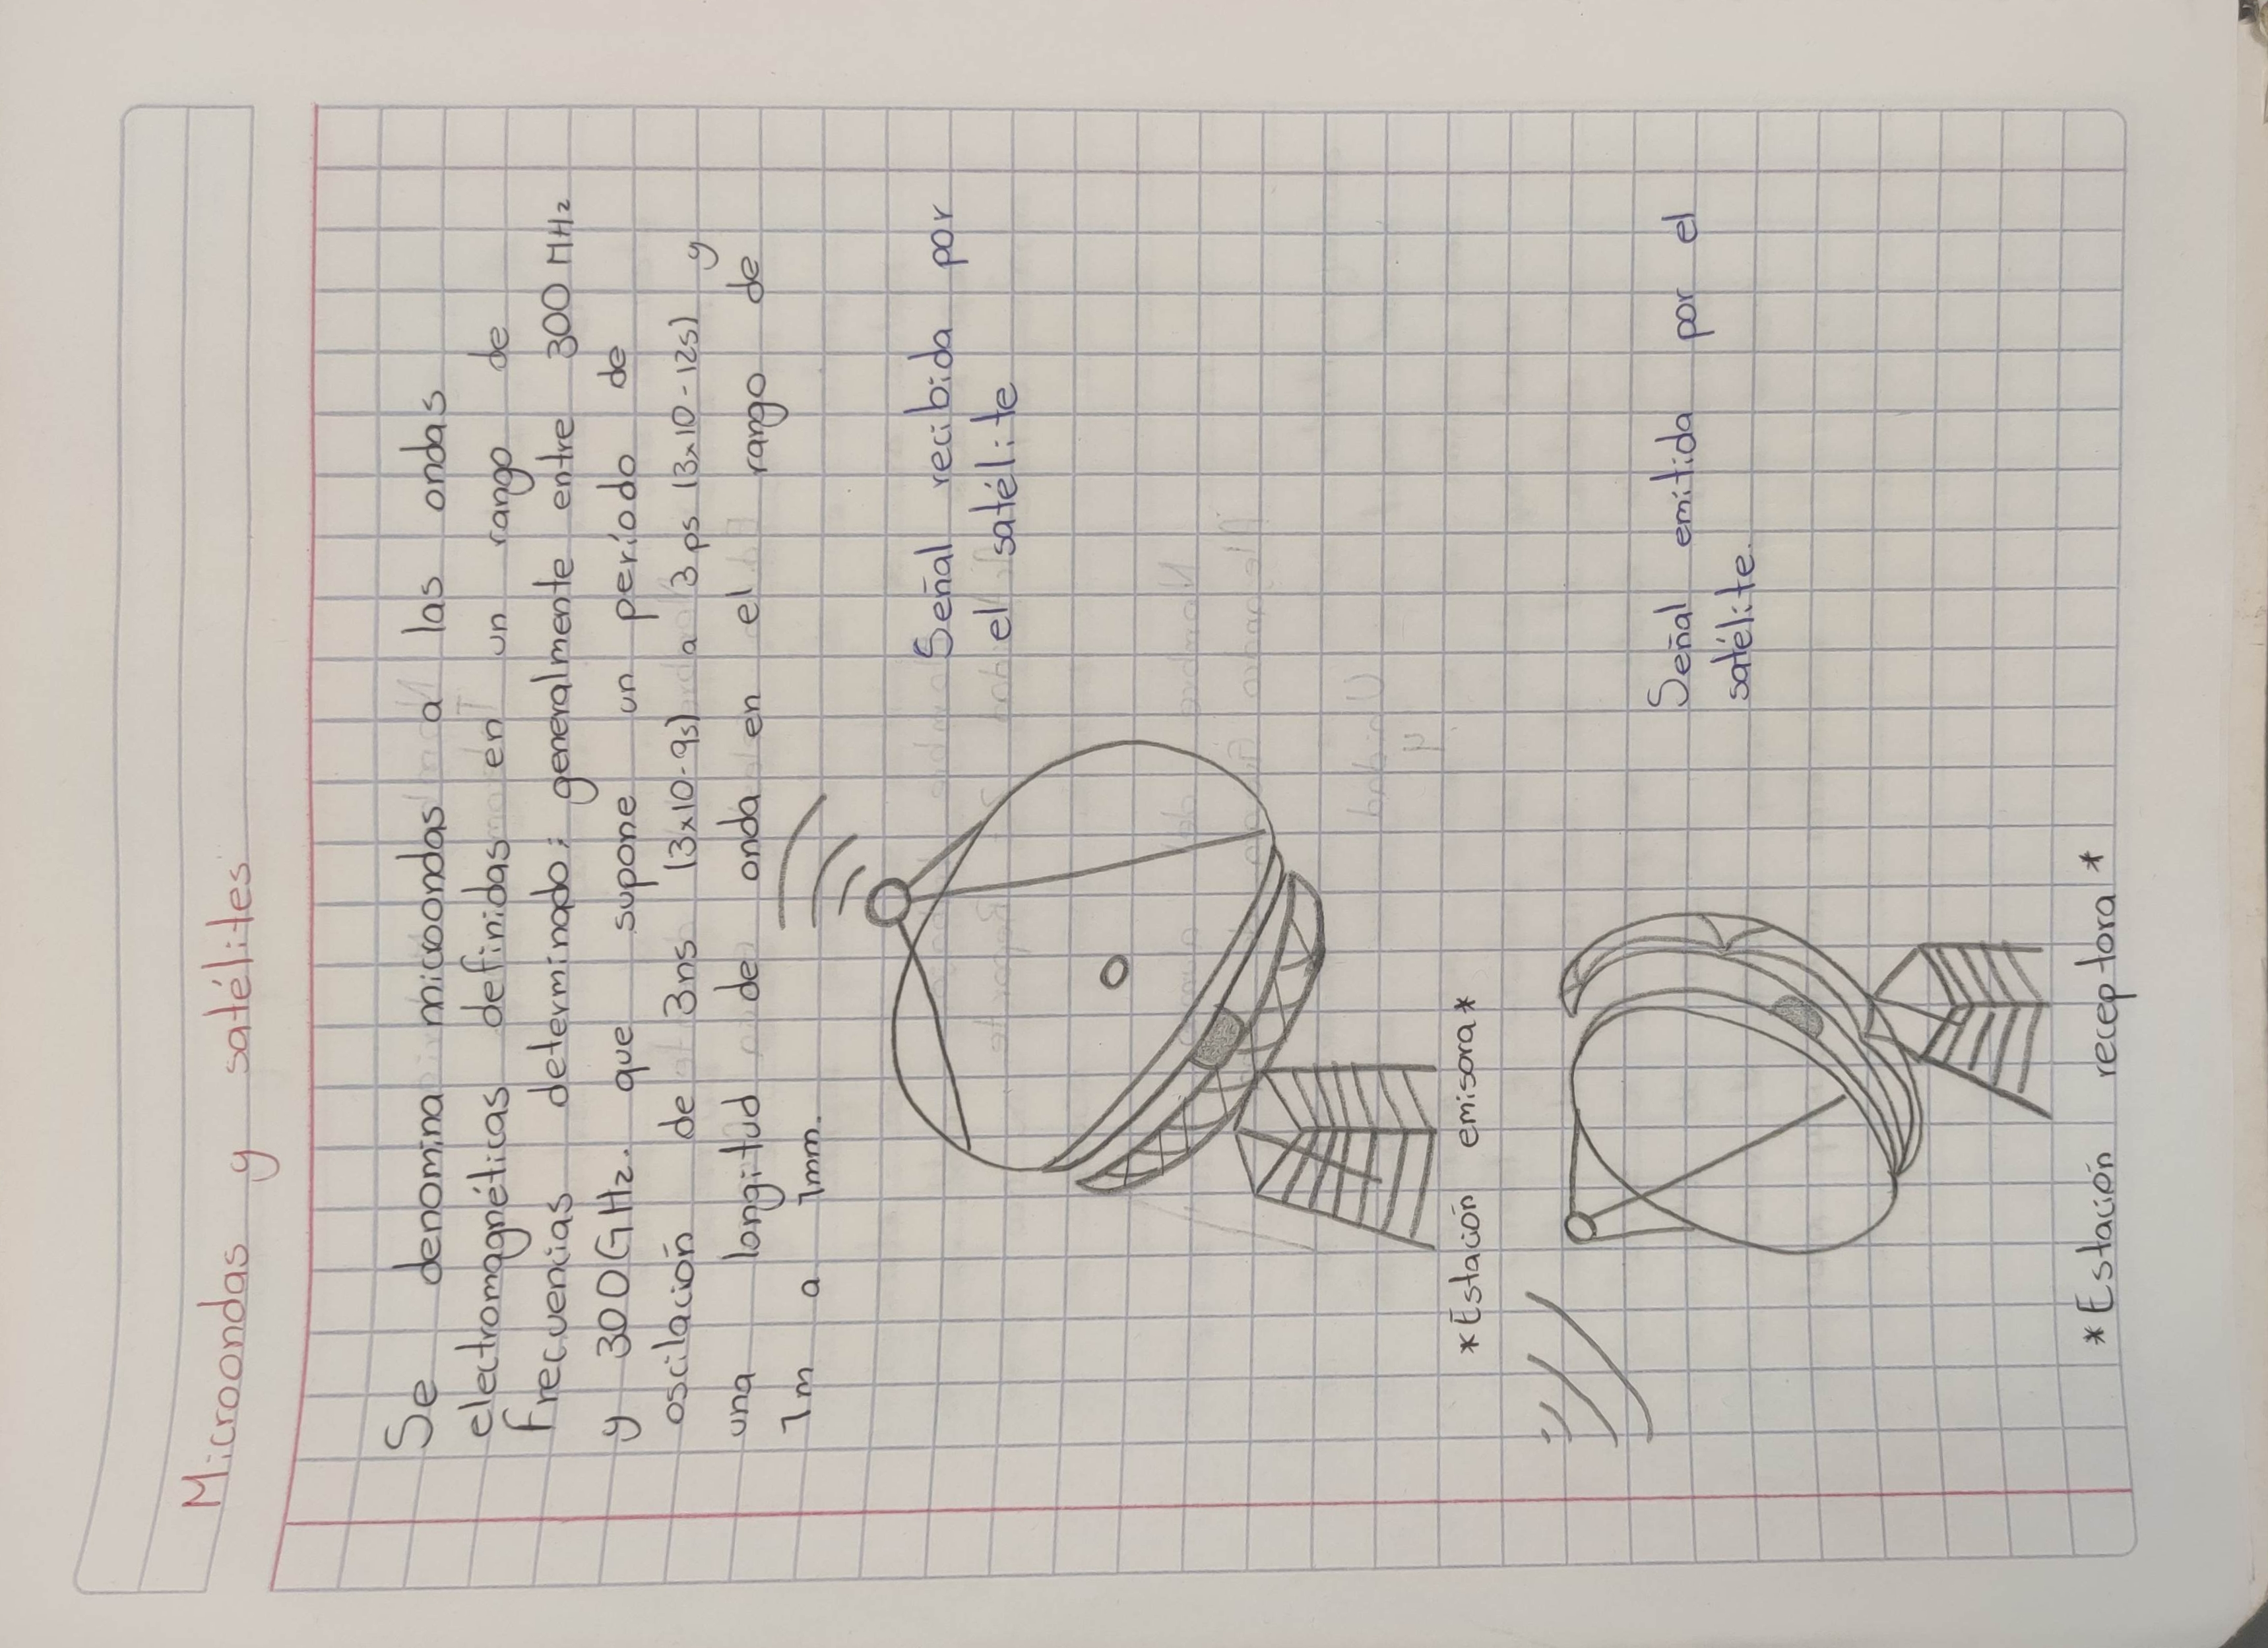 Microondas y satélites
Se denomina microondas a las ondas
electromagnéticas definidas en un rango de
Frecuencias determinado; generalmente entre 300 MHz
y 300GHz. que supone un período de
oscilación de 3ns (3x10-9s) a 3ps (3x10-12s) y
una longitud de onda en el rango de
1m a 1mm.
Señal recibida por
el satélite
*Estación emisora*
Señal emitida por el
satélite.
*Estación receptora*